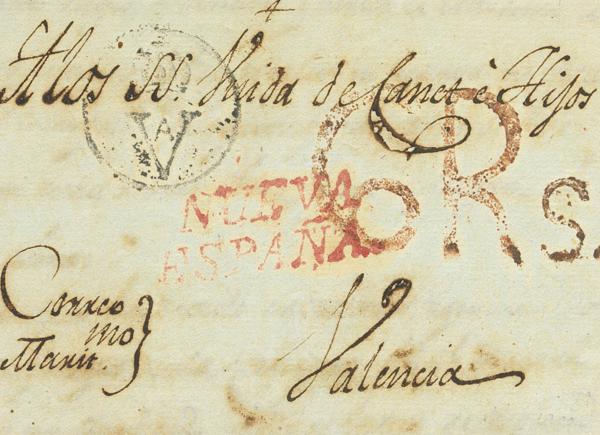 A los SS. Viuda de Canet è Hijos
A
V
NUEVA
ESPAÑA
6 Rs.
Correo
Marit.mo
Valencia